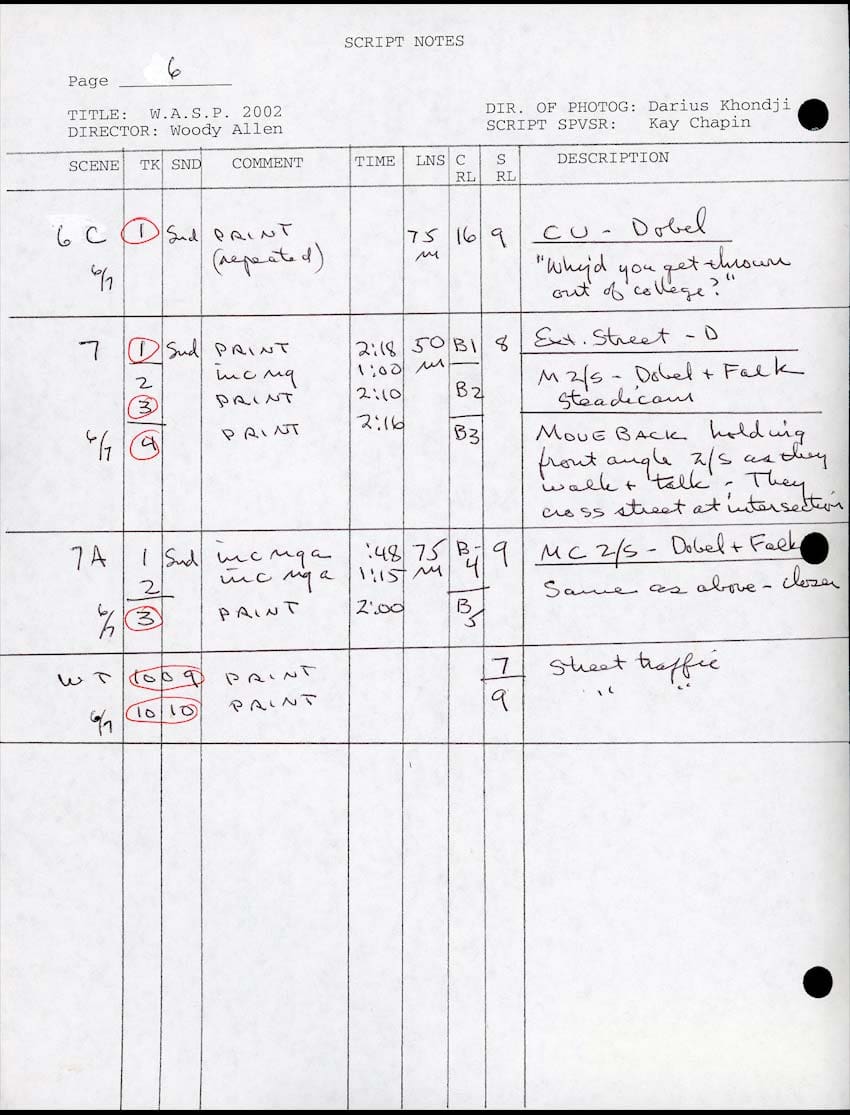 SCRIPT NOTES
Page 6
TITLE: W.A.S.P. 2002 DIR. OF PHOTOG: Darius Khondji
DIRECTOR: Woody Allen SCRIPT SPVSR: Kay Chapin
SCENE TK SND COMMENT TIME LNS C RL S RL DESCRIPTION
6 C 1 Snd PRINT 75 16 9 CU - Dobel
(repeated) m
6/7 "Why'd you get thrown
out of college?"
7 1 Snd PRINT 2:18 50 B1 8 Ext. Street - D
2 inc ng 1:00 m
3 PRINT 2:10 B2 M 2/S - Dobel + Falk
Steadicam
6/7 4 PRINT 2:16 B3 MOVE BACK holding
front angle 2/S as they
walk + talk - They
cross street at intersection
7A 1 Snd inc nga :48 75 B-4 9 MC 2/S - Dobel + Falk
2 inc nga 1:15 m
6/7 3 PRINT 2:00 B/5 Same as above - closer
W T 100 9 PRINT 7 Street traffic
6/7 10 10 PRINT 9 " "